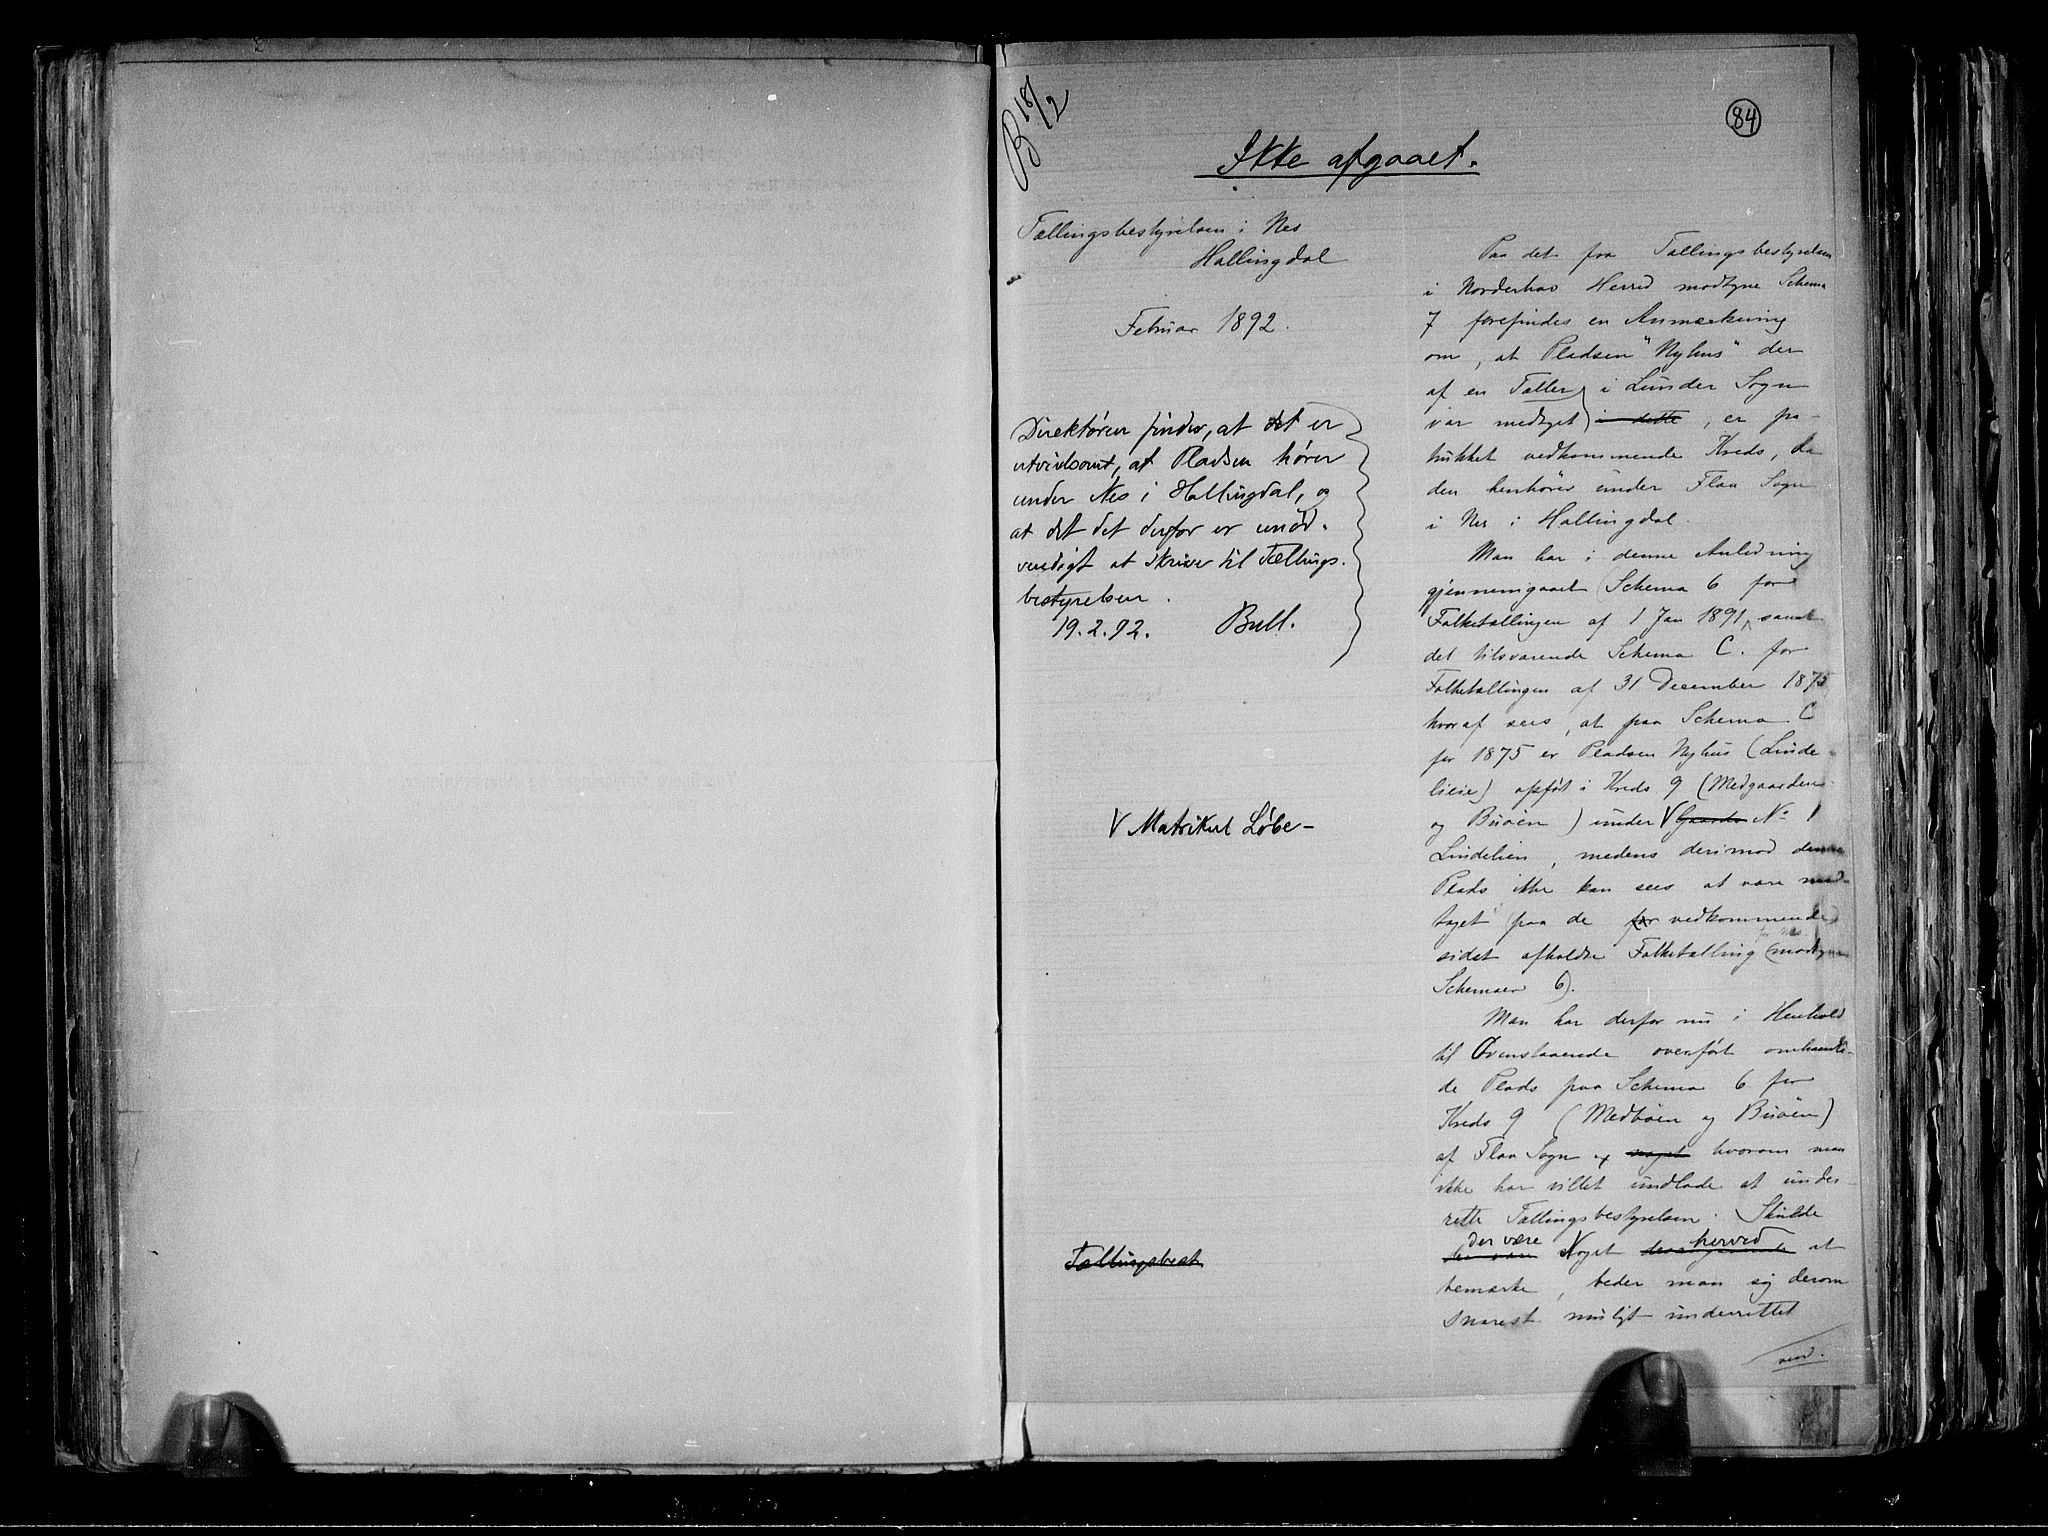 B 18/2
84
Ikke afgaaet.
Tællingsbestyrelsen i Nes
Hallingdal
Februar 1892.
Direktøren finder, at det er
utvivlsomt, at Pladsen hører
under Nes i Hallingdal, og
at det det derfor er unød-
vendigt at skrive til Tællings-
bestyrelsen.
19.2.92. Bull.
V Matrikul Løbe-
Tællingsbest
Paa det fra Tællingsbestyrelsen
i Norderhov Herred modtgne Schema
7 forefindes en Anmærkning
om, at Pladsen "Nyhus" der
af en Tæller i Lunder Sogn
var medtget i dette, er fra-
trukket vedkommende Kreds, da
den henhører under Flaa Sogn
i Nes i Hallingdal.
Man har i denne Anledning
gjennemgaaet Schema 6 for
Folketællingen af 1 Jan 1891, samt
det tilsvarende Schema C. for
Folketællingen af 31 December 1875
hvoraf sees, at paa Schema C
for 1875 er Pladsen Nyhus (Linde-
lieie) opført i Kreds 9 (Medgaardens-
og Buøen) under V Gaards No 1
Lindelien, medens derimod denne
Plads ikke kan sees at være med-
taget paa de for vedkommende
sidst afholdte Folketælling for Nes (modtgne
Schemaer 6).
Man har derfor nu i Henhold
til Ovenstaaende overført omhandle-
de Plads paa Schema 6 for
Kreds 9 (Medbøen og Buøen)
af Flaa Sogn noget hvorom man
ikke har villet undlade at under-
rette Tællingsbestyrelsen. Skulde
der være Noget herved at
bemærke, beder man sig derom
snarest muligt underrettet
vend.